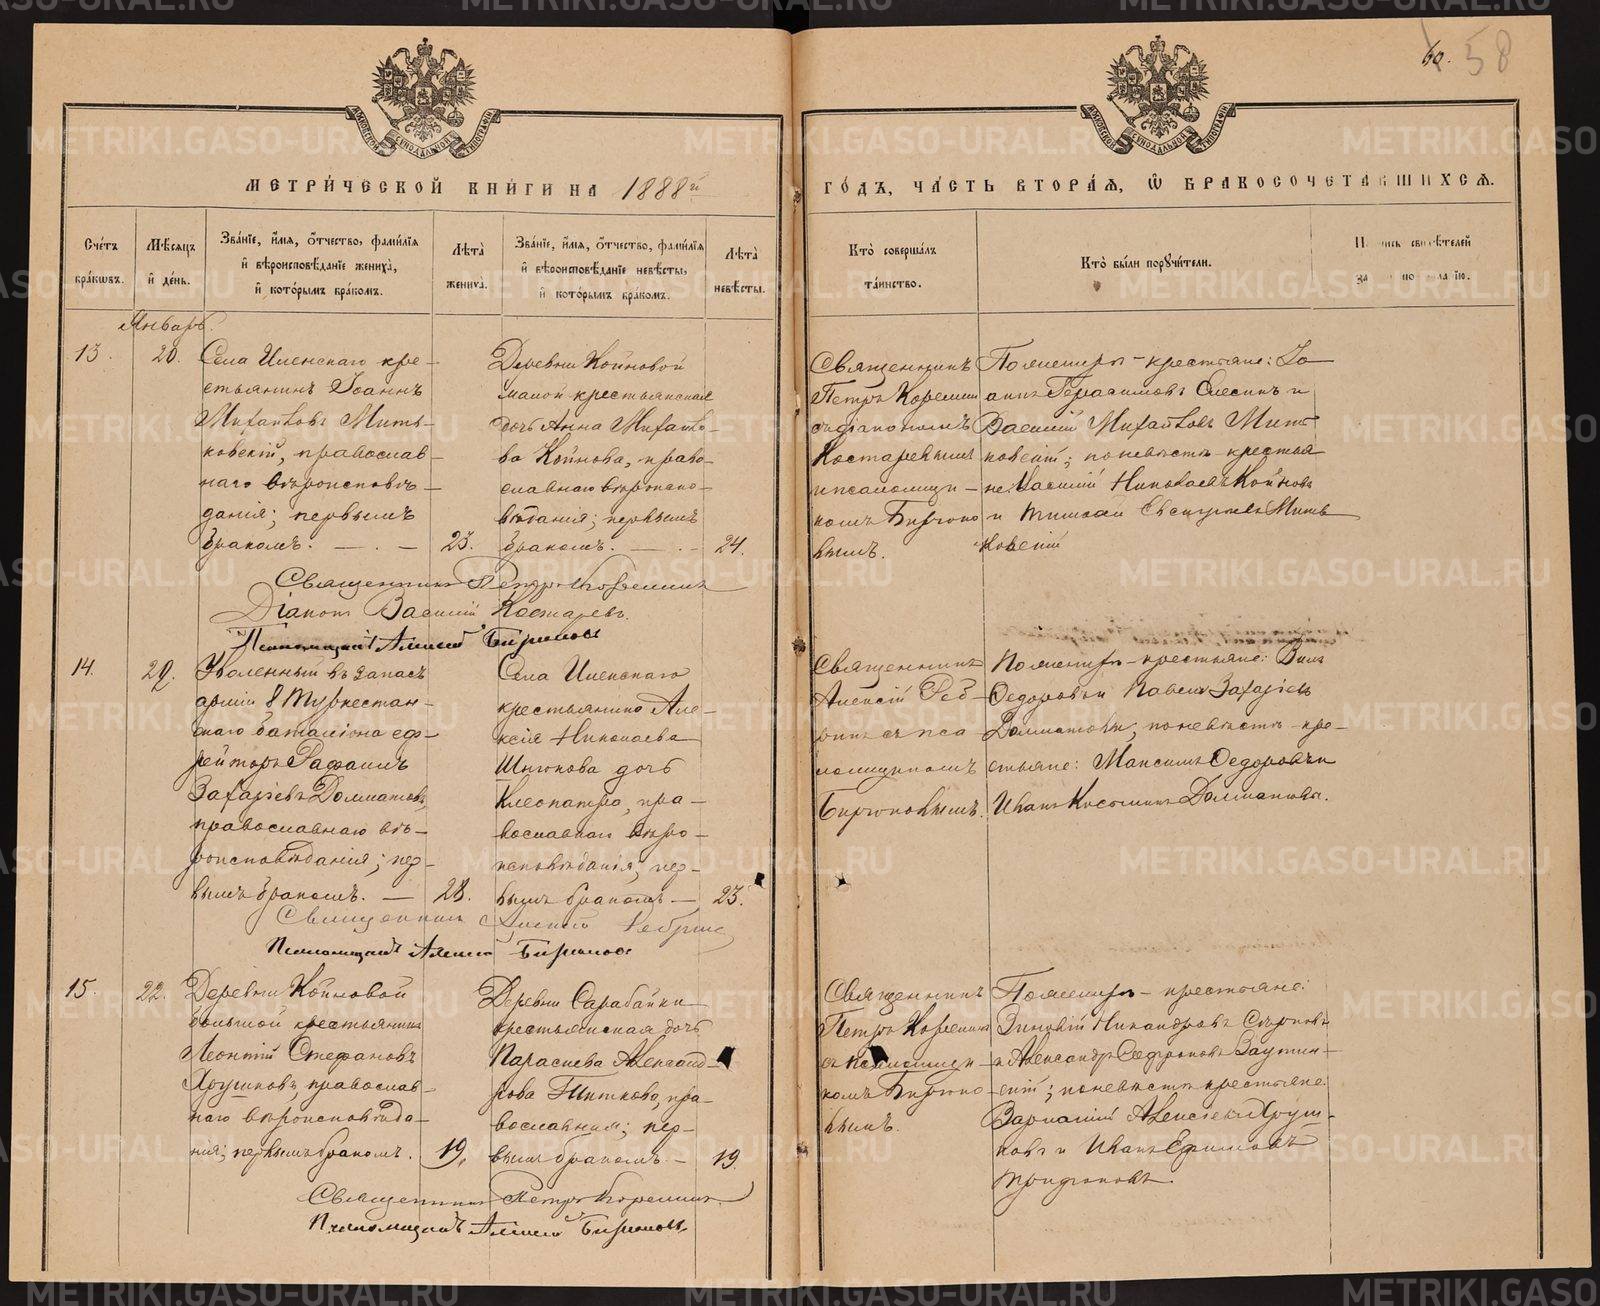 60. 58
МЕТРИ́ЧЕСКОЙ КНИ́ГИ НА 1888й
ГО́ДЪ, ЧА́СТЬ ВТОРА́Я, Ѡ БРАКОСОЧЕТА́ВШИХСЯ.
Сче́тъ бра́кѡвъ.
Мѣ́сяцъ и҆ де́нь.
Зва́нїе, и҆́мя, ѻ҆́тчество, фами́лїя и҆ вѣроисповѣ́данїе жениха̀, и҆ кото́рымъ бра́комъ.
Лѣ́та жениха̀.
Зва́нїе, и҆́мя, ѻ҆́тчество, фами́лїя и҆ вѣроисповѣ́данїе невѣ́сты, и҆ кото́рымъ бра́комъ.
Лѣ́та невѣ́сты.
Кто̀ соверша́лъ та́инство.
Кто̀ бы́ли порꙋчи́тели.
свидѣ́телей
Январь.
13.
20.
Села Иленскаго кре-
стьянинъ Іоаннъ
Михаиловъ Мить-
ковскій, православ-
наго вѣроисповѣ-
данія; первымъ
бракомъ.
23.
Деревни Койновой
малой крестьянская
дочь Анна Михайло-
ва Койнова, право-
славнаго вѣроиспо-
вѣданія; первымъ
бракомъ.
24.
Священникъ
Петръ Кореминъ
съ діакономъ
Костаревымъ
и псаломщи-
комъ Бирюко
вымъ.
По женихѣ - крестьяне: Іо-
аннъ Герасимовъ и
Василій Михайловъ Мить
ковскій; по невѣстѣ крестья
не: Василій Николаевъ Койновъ
и Мить
ковскій
Священникъ Петръ Кореминъ
Діаконъ Василій Костаревъ.
Псаломщикъ Алексій Бирюковъ
14.
20.
Уволенный въ запасъ
арміи 8 Туркестан-
скаго баталіона еф-
рейторъ Рафаилъ
Захаріевъ Долматовъ,
православнаго вѣ-
роисповѣданія; пер-
вымъ бракомъ.
28.
Села Иленскаго
крестьянина Але-
ксія Николаева
Шнюкова дочь
Клеопатра, пра-
вославнаго вѣро-
исповѣданія; пер-
вымъ бракомъ
23.
Священникъ
Алексій Реб-
ринъ съ пса
ломщикомъ
Бирюковымъ.
По женихѣ - крестьяне:
Ѳедоровъ и Павелъ Захаріевъ
Долматовы; по невѣстѣ - кре-
стьяне: Максимъ Ѳедоровъ и
Иванъ Косминъ Долматовы.
Священникъ Алексій Ребринъ
Псаломщикъ Алексій Бирюковъ
15.
22.
Деревни Койновой
большой крестьянинъ
Леонтій Стефановъ
Хрушковъ, православ-
наго вѣроисповѣда-
нія; первымъ бракомъ.
19.
Деревни Сарабайки
крестьянская дочь
Параскева Александ-
рова Питкова, пра-
вославная; пер-
вымъ бракомъ.
19.
Священникъ
Петръ Кореминъ
съ псаломщи-
комъ Бирюко-
вымъ.
По женихѣ - крестьяне:
Зиновій Никандровъ
и Александръ
скій; по невѣстѣ крестьяне:
Варлаамъ Алексіевъ Хруш-
ковъ и Иванъ Ефимовъ
Трифоновъ.
Священникъ Петръ Кореминъ
Псаломщикъ Алексій Бирюковъ.
METRIKI.GASO-URAL.RU